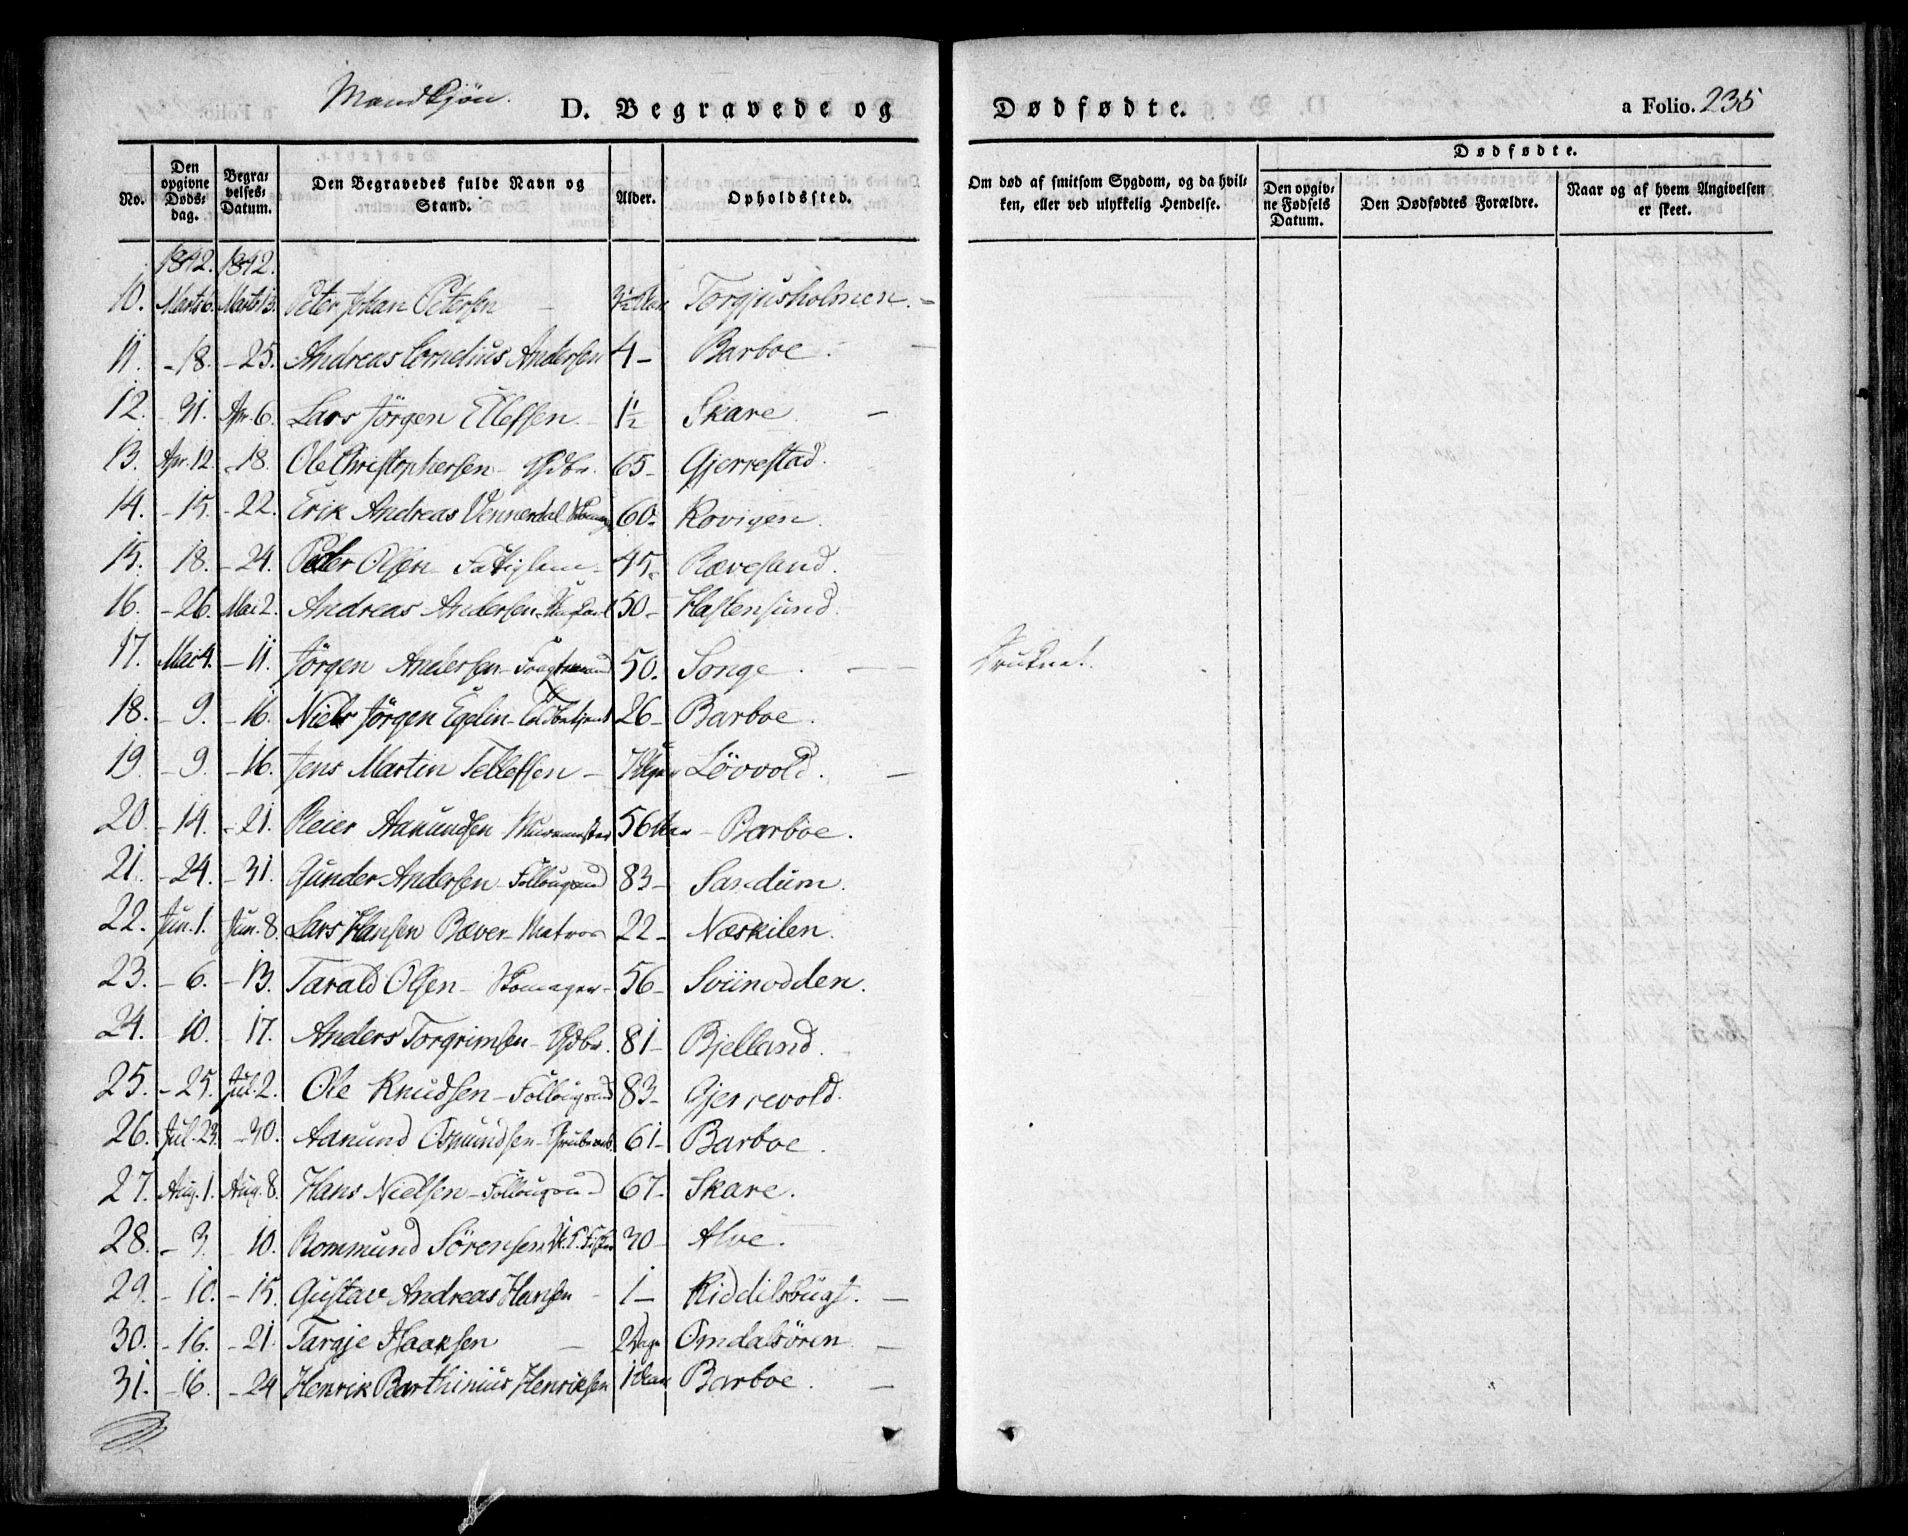 Mandkjön. D. Begravede og Dødfødte. a Folio. 235
Dødfødte.
No. Den opgivne Dødsdag. Begravelses-Datum. Den Begravedes fulde Navn og Stand. Alder. Opholdssted. Om død af smitsom Sygdom, og da hvilken, eller ved ulykkelig Hendelse. Den opgivne Fødsels Datum. Den Dødfødtes Forældre. Naar og af hvem Angivelsen er skeet.
1842. 1842.
10. Marts 6. Marts 13. Peter Johan Petersen - 3½ Aar Torgjusholmen. -
11. - 18. - 25. Andreas Cornelius Andersen 4 - Barboe. -
12. - 31. Apr. 6. Lars Jörgen Ellefsen. - 1½ Skare -
13. Apr. 12. - 18. Ole Christophersen - Gdbr. 65 - Gjerrestad.
14. - 15. - 22. Erik Andreas Vennerdal 60. Rovigen.
15. 18. - 24. Peder Olsen - Fattiglem - 45. Rævesand.
16. - 26. Mai 2. Andreas Andersen - 50 - Hastensund.
17. Mai 4. - 11. Jörgen Andersen - 50. Songe. - - Druknet.
18. - 9. - 16. Niels Jörgen Egelin - Toldbetjent 26 - Barboe.
19. - 9. - 16. Jens Martin Tellefsen - Lövvold. -
20. - 14. - 21. Peter Aanundsen Muurmester 56 Aar - Barboe.
21. - 24. - 31. Gunder Andersen - Follougsmd 83 - Sandum.
22. Jun. 1. Jun. 8. Lars Hansen Bæver - Matros 22 - Næskilen.
23. - 6. - 13. Tarald Olsen - Skomager - 56 - Sviinodden.
24. - 10. - 17. Anders Torgrimsen - Gdbr. 81 - Bjelland.
25. - 25. Jul. 2. Ole Knudsen - Follougsmd 83 - Gjerrevold.
26. Jul. 23. - 30. Aanund Osmundsen - Grubearb 61 - Barboe.
27. Aug. 1. Aug. 8. Hans Nielsen - Follougsmd 67 - Skare.
28. - 3. 10. Rommund Sörensen 30 - Alve.
29. - 10. - 15. Gustav Andreas Hansen - 1 - Kiddilsbugt. -
30. - 16. - 21. Targje Isaaksen - 2 Dage Omdalsören. -
31. - 16. - 24 Henrik Barthinius Henriksen 1 Aar Barboe. -